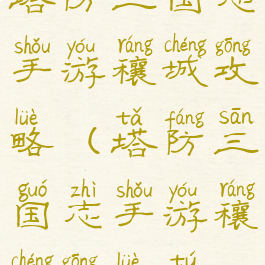 塔防三国志
shǒu yóu ráng chéng gōng
手游穰城攻
lüè tǎ fáng sān
略（塔防三
guó zhì shǒu yóu ráng
国志手游穰
chéng gōng lüè tú